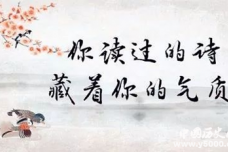 你读过的诗
藏着你的气质